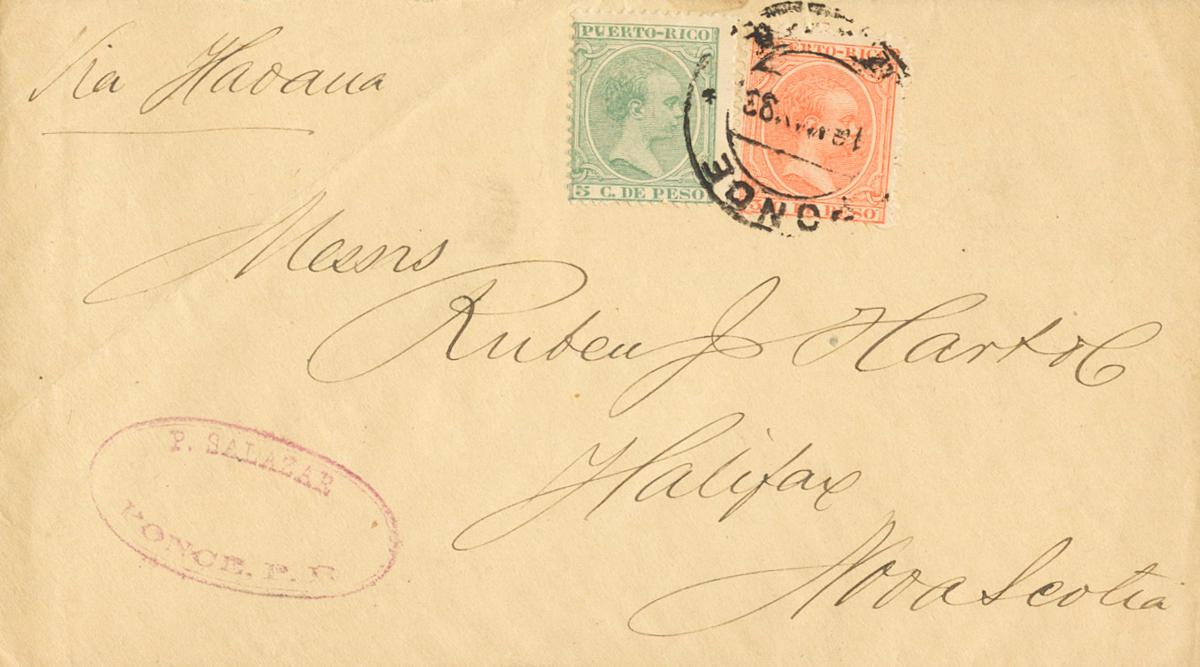 Via Havana
PUERTO-RICO
5 C. DE PESO
PUERTO-RICO
PESO
PONCE
93
Messrs
Ruben J Hart & C
Halifax
Nova Scotia
P. SALAZAR
PONCE. P. R